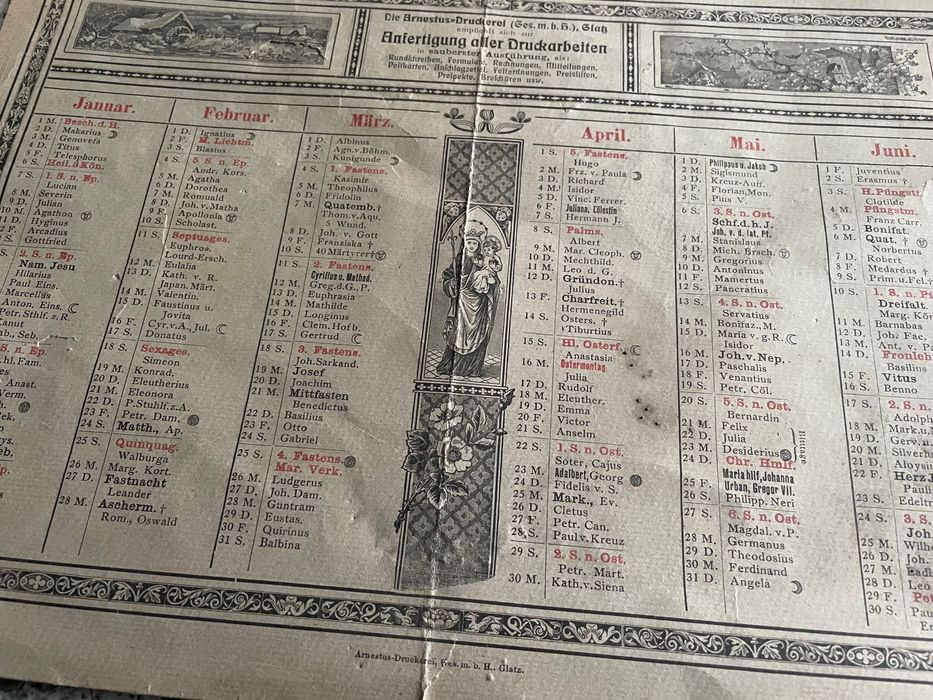 Die Arnestus-Druckerei (Ges. m. b. H.), Glatz
empfiehlt sich zur
Anfertigung aller Druckarbeiten
in sauberster Ausführung, als:
Rundschreiben, Formulare, Rechnungen, Mitteilungen,
Postkarten, Anschlagzettel, Festordnungen, Preislisten,
Prospekte, Broschüren usw.
Januar.
1 M. Besch. d. H.
2 D. Makarius
3 M. Genovefa
4 D. Titus
5 F. Telesphorus
6 S. Heil. 3 Kön.
7 S. 1. S. n. Ep.
Lucian
8 M. Severin
9 D. Julian
10 M. Agathon
11 D. Hyginus
12 F. Arcadius
S. Gottfried
S. 2. S. n. Ep.
Nam. Jesu
Hilarius
Paul Eins.
Marcellus
Anton. Eins.
Petr. Sthlf. z. R.
Kanut
S. n. Ep.
hl. Fam.
Anast.
Februar.
1 D. Ignatius
2 F. M. Lichtm.
3 S. Blasius
4 S. 5. S. n. Ep.
Andr. Kors.
5 M. Agatha
6 D. Dorothea
7 M. Romuald
8 D. Joh. v. Matha
9 F. Apollonia
10 S. Scholast.
11 S. Septuages.
Euphros.
Lourd-Ersch.
12 M. Eulalia
13 D. Kath. v. R.
Japan. Märt.
14 M. Valentin.
15 D. Faustinus u.
Jovita
16 F. Cyr. v. A., Jul.
17 S. Donatus
18 S. Sexages.
Simeon
19 M. Konrad.
20 D. Eleutherius
21 M. Eleonora
22 D. P. Stuhlf. z. A.
23 F. Petr. Dam.
24 S. Matth., Ap.
25 S. Quinquag.
Walburga
26 M. Marg. Kort.
27 D. Fastnacht
Leander
28 M. Ascherm. †
Rom., Oswald
März.
1 D. Albinus
2 F. Agn. v. Böhm.
3 S. Kunigunde
4 S. 1. Fastens.
Kasimir
5 M. Theophilus
6 D. Fridolin
7 M. Quatemb. †
Thom. v. Aqu.
5 Wund.
8 D. Joh. v. Gott
9 F. Franziska †
10 S. 40 Märtyrer †
11 S. 2. Fastens.
Cyrillus u. Method.
12 M. Greg. d. G., P.
13 D. Euphrasia
14 M. Mathilde
15 D. Longinus
16 F. Clem. Hofb.
17 S. Gertrud
18 S. 3. Fastens.
Joh. Sarkand.
19 M. Josef
20 D. Joachim
21 M. Mittfasten
Benedictus
22 D. Basilius
23 F. Otto
24 S. Gabriel
25 S. 4. Fastens.
Mar. Verk.
26 M. Ludgerus
27 D. Joh. Dam.
28 M. Guntram
29 D. Eustas.
30 F. Quirinus
31 S. Balbina
April.
1 S. 5. Fastens.
Hugo
2 M. Frz. v. Paula
3 D. Richard
4 M. Isidor
5 D. Vinc. Ferrer.
6 F. Juliana, Cölestin
7 S. Hermann J.
8 S. Palms.
Albert
9 M. Mar. Cleoph.
10 D. Mechthild.
11 M. Leo d. G.
12 D. Gründon. †
Julius
13 F. Charfreit. †
Hermenegild
14 S. Osters. †
Tiburtius
15 S. Hl. Osterf.
Anastasia
16 M. Ostermontag
Julia
17 D. Rudolf
18 M. Eleuther.
19 D. Emma
20 F. Victor
21 S. Anselm
22 S. 1. S. n. Ost.
Soter, Cajus
23 M. Adalbert, Georg
24 D. Fidelis v. S.
25 M. Mark., Ev.
26 D. Cletus
27 F. Petr. Can.
28 S. Paul v. Kreuz
29 S. 2. S. n. Ost.
Petr. Märt.
30 M. Kath. v. Siena
Mai.
1 D. Philippus u. Jakob
2 M. Sigismund
3 D. Kreuz-Auff.
4 F. Florian, Mon.
5 S. Pius V.
6 S. 3. S. n. Ost.
Schf. d. h. J.
Joh. v. d. lat. Pf.
7 M. Stanislaus
8 D. Mich. Ersch.
9 M. Gregorius
10 D. Antoninus
11 F. Mamertus
12 S. Pancratius
13 S. 4. S. n. Ost.
Servatius
14 M. Bonifaz., M.
15 D. Maria v. g. R.
Isidor
16 M. Joh. v. Nep.
17 D. Paschalis
18 F. Venantius
19 S. Petr. Cöl.
20 S. 5. S. n. Ost.
Bernardin
21 M. Felix
22 D. Julia
23 M. Desiderius
Bittage
24 D. Chr. Hmlf.
Maria hilf, Johanna
25 F. Urban, Gregor VII.
26 S. Philipp. Neri
27 S. 6. S. n. Ost.
Magdal. v. P.
28 M. Germanus
29 D. Theodosius
30 M. Ferdinand
31 D. Angela
Juni.
1 F. Juventius
2 S. Erasmus †
3 S. H. Pfingstf.
Clotilde
4 M. Pfingstm.
Franz Carr.
5 D. Bonifat.
6 M. Quat. †
Norbertus
7 D. Robert
8 F. Medardus †
9 S. Prim. u. Fel. †
10 S. 1. S. n. Pf
Dreifalt.
Marg. Kön
11 M. Barnabas
12 D. Joh. Fac.
13 M. Ant. v. Pa
14 D. Fronleich
Basilius
15 F. Vitus
16 S. Benno
17 S. 2. S. n.
Adolph
18 M. Mark. u.
19 D. Gerv. u.
20 M. Silveriu
21 D. Aloysius
22 F. Herz J
Pauli
23 S. Edeltr
24 S. 3. S.
Joh.
25 M. Wilh
26 D. Joh.
27 M. Ladi
28 D. Leo
29 F. Pet
30 S. Pau
Arnestus-Druckerei, Ges. m. b. H., Glatz.